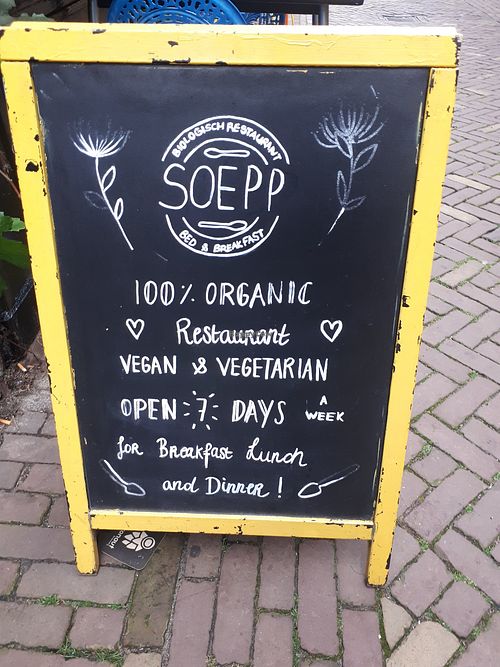 BIOLOGISCH RESTAURANT
SOEPP
BED & BREAKFAST
100% ORGANIC
Restaurant
VEGAN & VEGETARIAN
OPEN 7 DAYS A WEEK
for Breakfast Lunch
and Dinner!